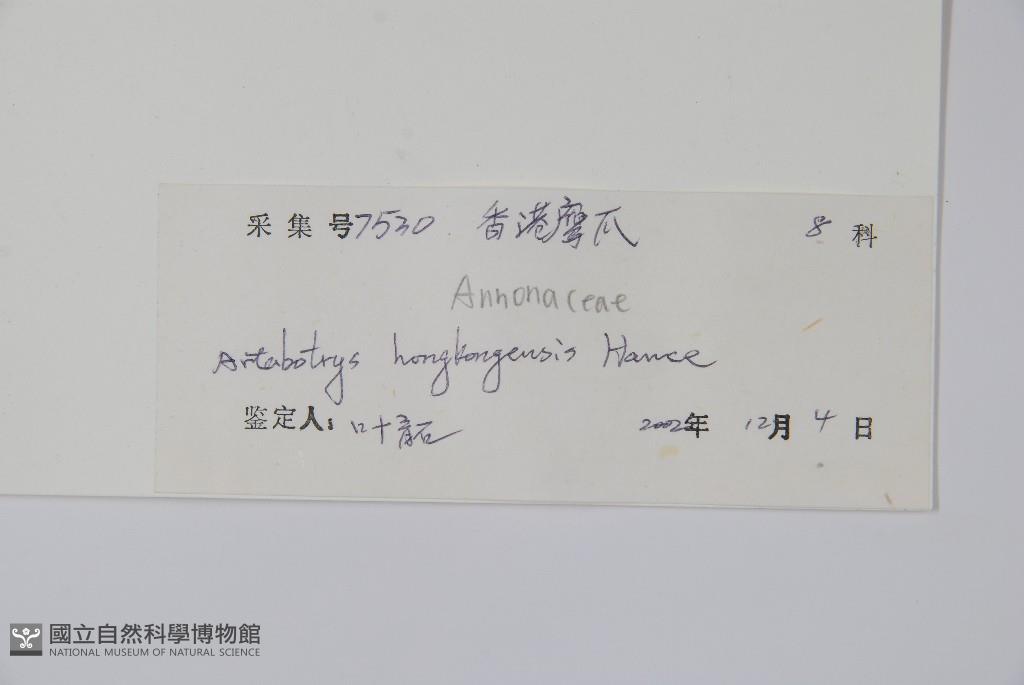 采集号 7530 香港鹰爪 8 科
Annonaceae
Artabotrys hongkongensis Hance
鉴定人: 叶育石 2002年 12月 4 日
國立自然科學博物館
NATIONAL MUSEUM OF NATURAL SCIENCE